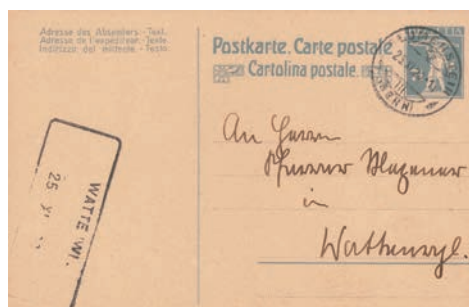 Adresse des Absenders - Text.
Adresse de l'expéditeur - Texte.
Indirizzo del mittente - Testo.
Postkarte. Carte postale
Cartolina postale.
An Herrn
Pfarrer
in
Wattenwyl.
WATTE WI.
25 XI